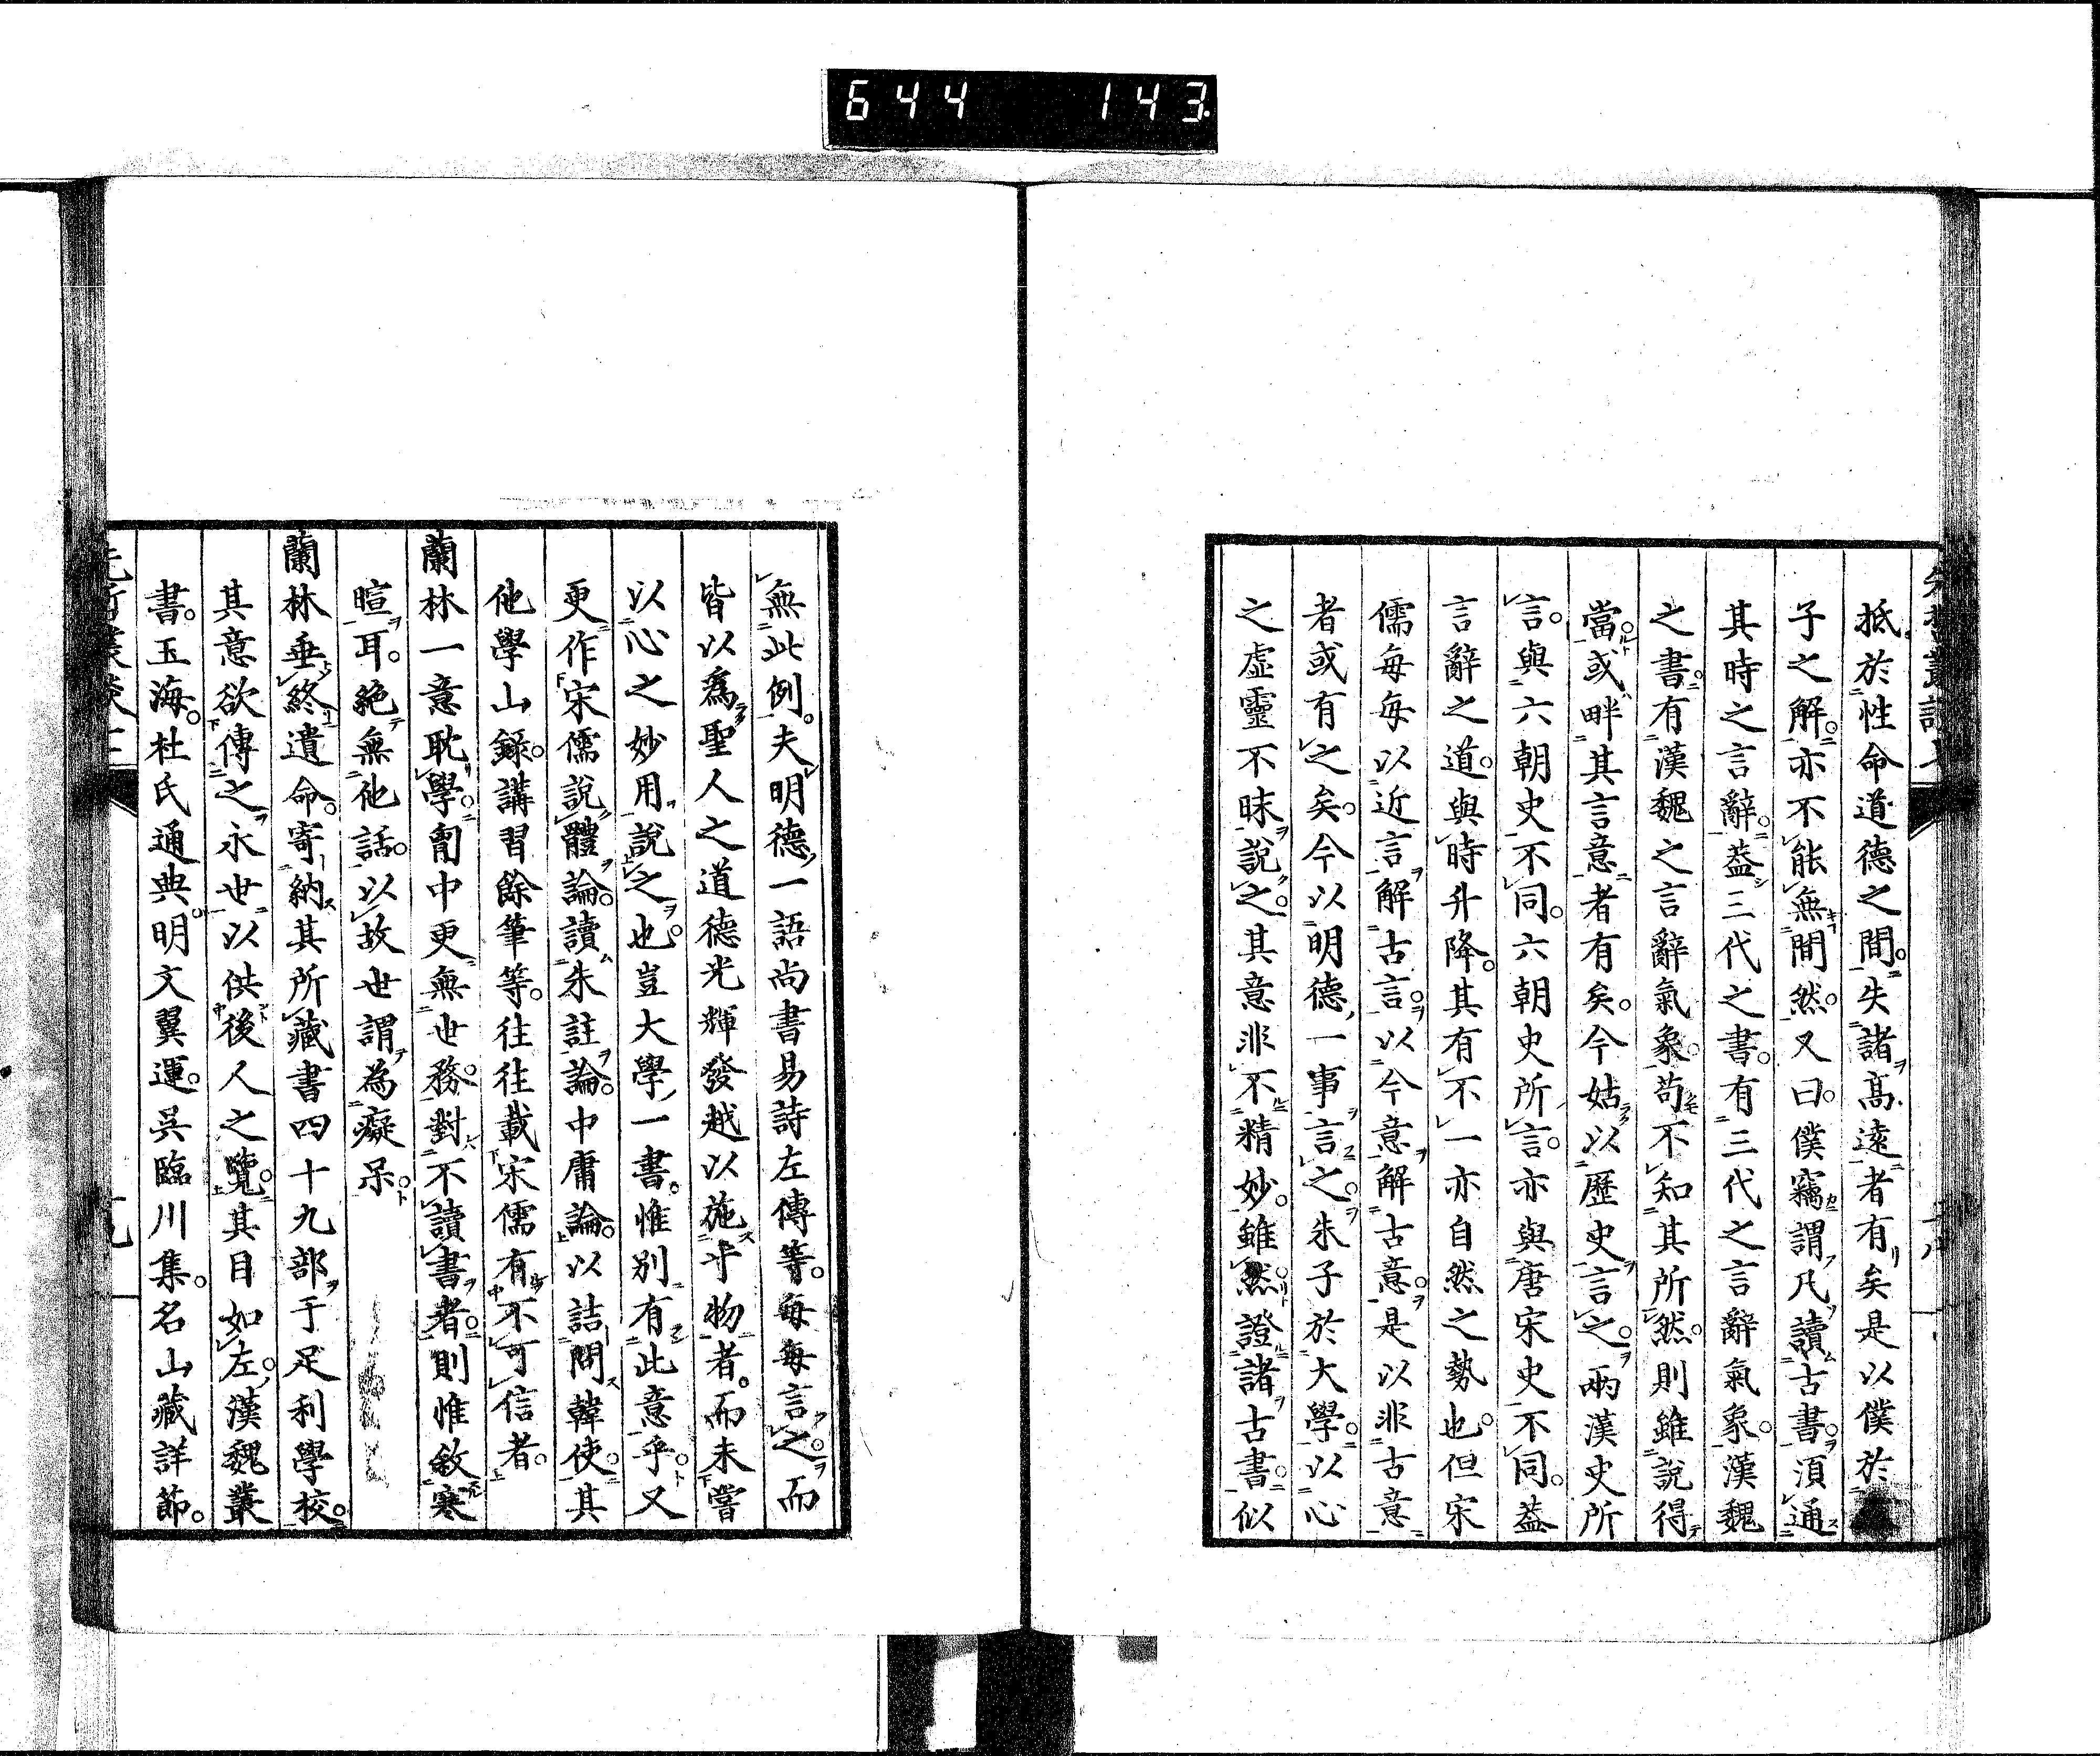 644 143
抵於性命道德之間。失諸高遠者有矣是以僕於
子之解。亦不能無間然。又曰。僕竊謂凡讀古書。須通
其時之言辭。蓋三代之書。有三代之言辭氣象。漢魏
之書。有漢魏之言辭氣象。苟不知其所然。則雖說得
當。或畔其言意者有矣。今姑以歷史言之。兩漢史所
言。與六朝史不同。六朝史所言。亦與唐宋史不同。蓋
言辭之道。與時升降。其有不一亦自然之勢也。但宋
儒每每以近言解古言。以今意解古意。是以非古意
者或有之矣。今以明德一事言之。朱子於大學。以心
之虛靈不昧說之。其意非不精妙。雖然證諸古書。似
無此例。夫明德一語尚書易詩左傳等。每每言之。而
皆以爲聖人之道德光輝發越以施乎物者。而未嘗
以心之妙用說之也。豈大學一書。惟別有此意乎。又
更作宋儒說體論。讀朱註論。中庸論。以詰問韓使。其
他學山錄。講習餘筆等。往往載宋儒有不可信者。
蘭林一意耽學。胷中更無世務。對不讀書者。則惟敘寒
暄耳。絕無他話。以故世謂為癡呆。
蘭林垂終遺命。寄納其所藏書四十九部于足利學校。
其意欲傳之永世以供後人之覽。其目如左。漢魏叢
書。玉海。杜氏通典。明文翼運。吳臨川集。名山藏詳節。